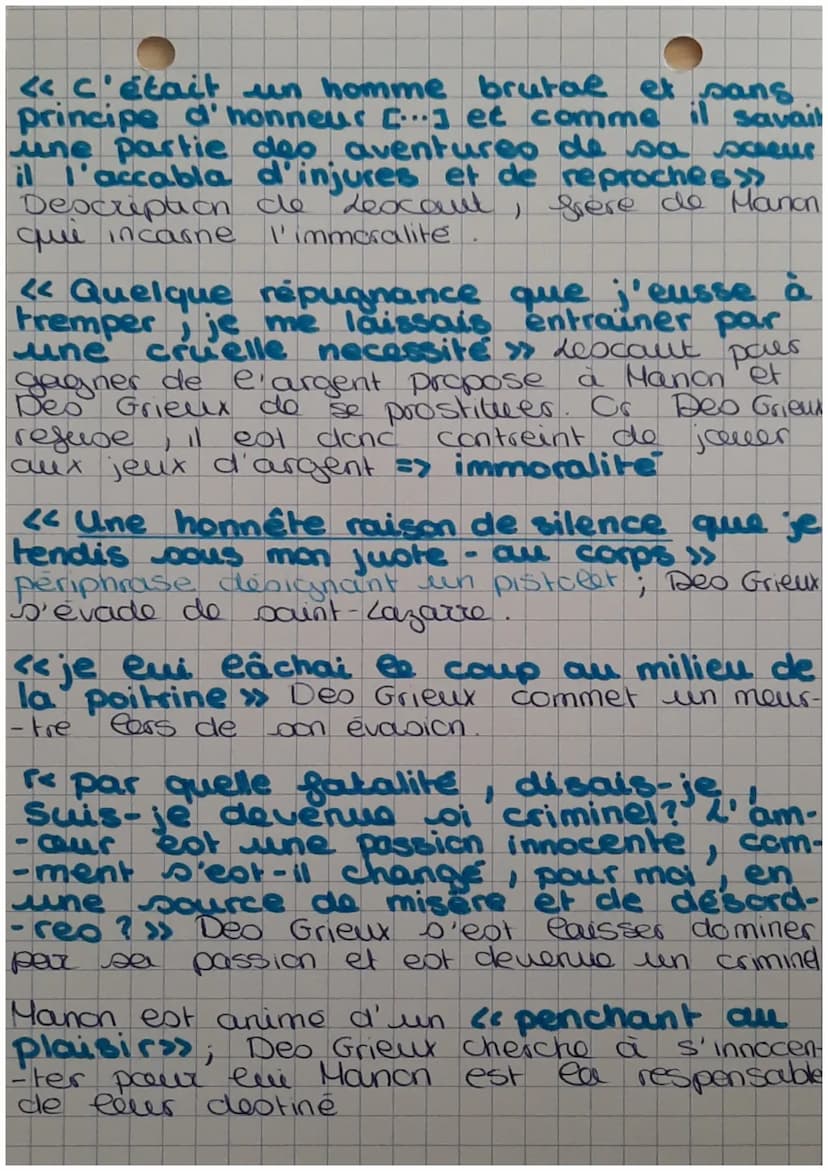 « C'était un homme brutal et sans
principe d'honneur [...] et comme il savait
une partie des aventures de sa soeur
il l'accabla d'injures et de reproches»
Description de Lescaut, frère de Manon
qui incarne l'immoralité.
« Quelque répugnance que j'eusse à
tremper, je me laissais entrainer par
une cruelle necessité » Lescaut pour
gagner de l'argent propose à Manon et
Des Grieux de se prostituer. Or Des Grieux
refuse, il est donc contreint de jouer
aux jeux d'argent => immoralité
« Une honnête raison de silence que je
tendis sous mon juste-au corps »
périphrase désignant un pistolet ; Des Grieux
s'évade de saint-Lazarre.
« je lui lâchai le coup au milieu de
la poitrine » Des Grieux commet un meur-
-tre lors de son évasion.
« par quelle fatalité, disais-je,
suis-je devenue si criminel? L'am-
-our est une passion innocente, com-
-ment s'est-il changé, pour moi, en
une source de misère et de désord-
-res ? » Des Grieux s'est laisser dominer
par sa passion et est devenue un criminel
Manon est animé d'un « penchant au
plaisir»; Des Grieux cherche à s'innocen-
-ter pour lui Manon est la responsable
de leur destiné